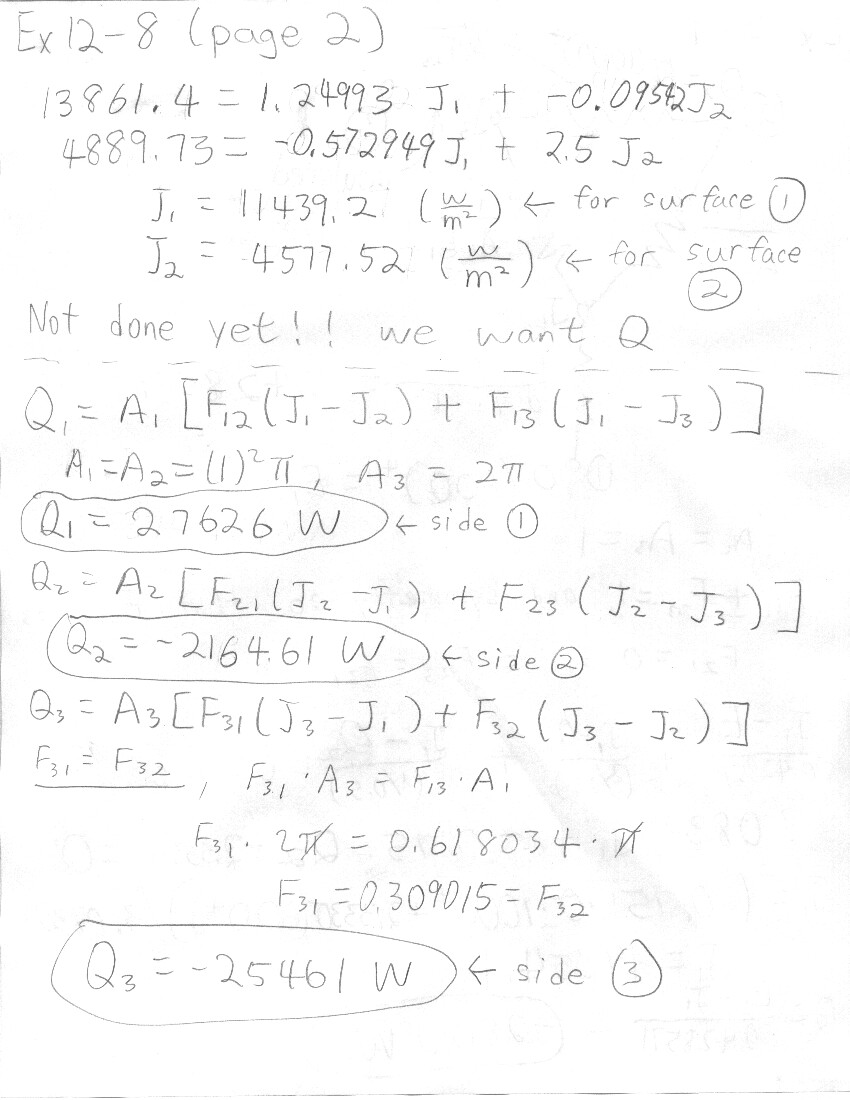 Ex 12-8 (page 2)
13861.4 = 1.24993 J₁ + -0.09542J₂
4889.73 = -0.572949J₁ + 2.5 J₂
J₁ = 11439.2 (w/m²) ← for surface ①
J₂ = 4577.52 (w/m²) ← for surface ②
Not done yet!! we want Q
Q₁ = A₁ [F₁₂(J₁ - J₂) + F₁₃ (J₁ - J₃)]
A₁=A₂=(1)²π, A₃ = 2π
Q₁ = 27626 W ← side ①
Q₂ = A₂ [F₂₁(J₂ - J₁) + F₂₃ (J₂ - J₃)]
Q₂ = -2164.61 W ← side ②
Q₃ = A₃[F₃₁(J₃ - J₁) + F₃₂(J₃ - J₂)]
F₃₁ = F₃₂, F₃₁ · A₃ = F₁₃ · A₁
F₃₁ · 2π = 0.618034 · π
F₃₁ = 0.309015 = F₃₂
Q₃ = -25461 W ← side ③